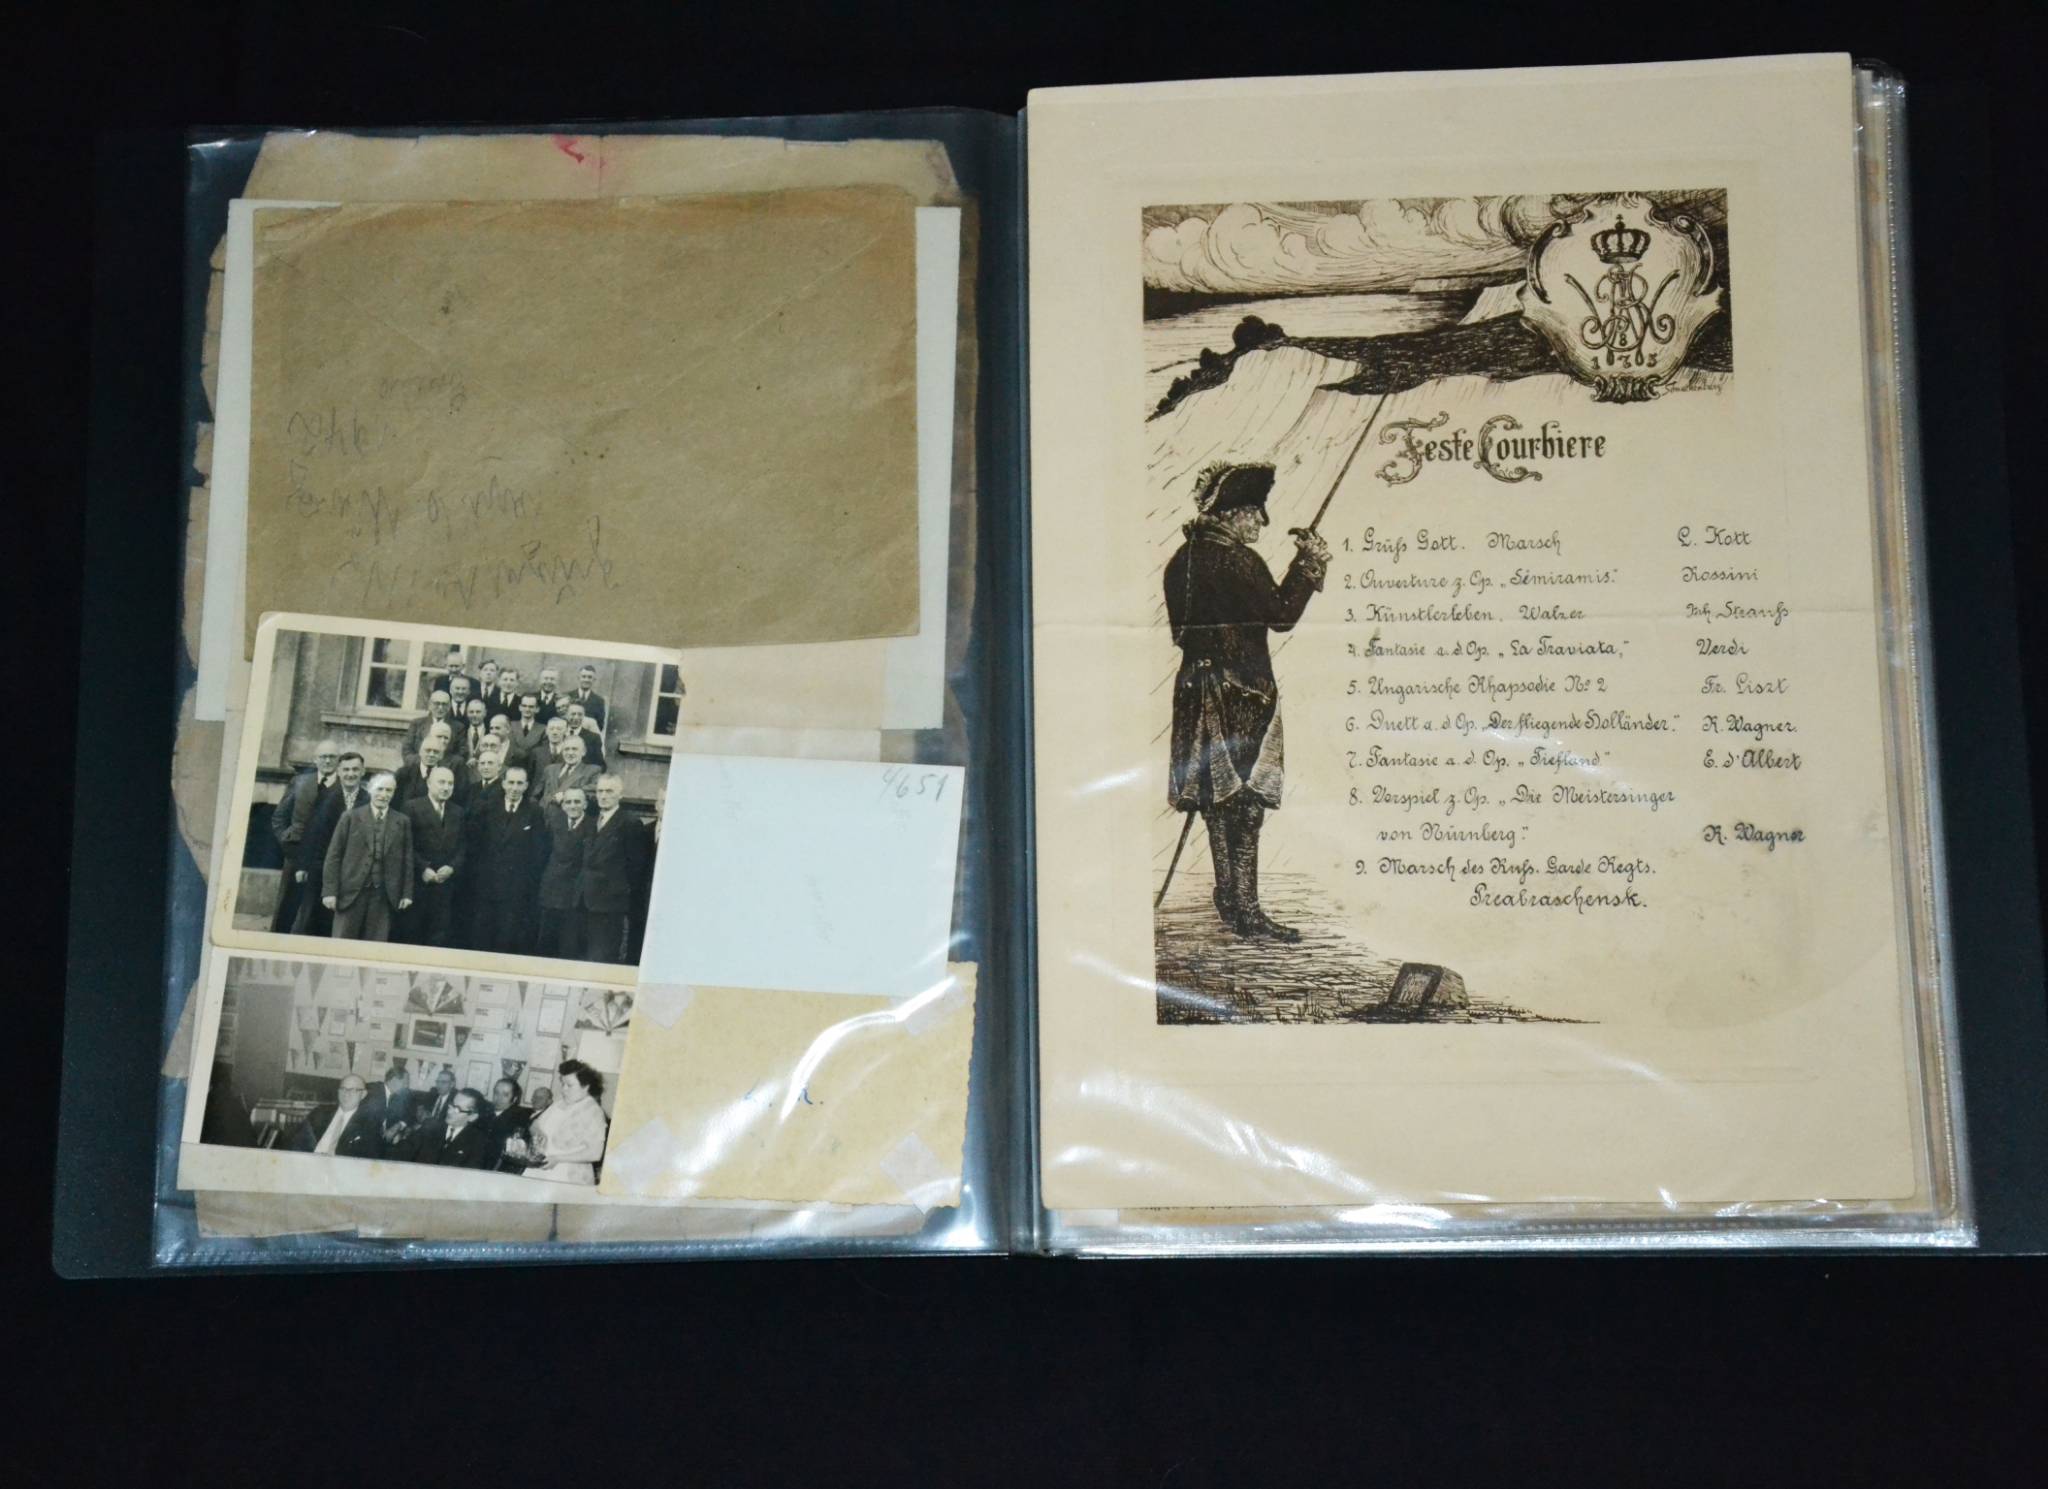 1942
4651
1735
Feste Courbiere
1. Grüß Gott. Marsch L. Kott
2. Ouverture z. Op. „Sémiramis." Rossini
3. Künstlerleben. Walzer Joh. Strauß
4. Fantasie a. d. Op. „La Traviata," Verdi
5. Ungarische Rhapsodie No 2 Fr. Liszt
6. Duett a. d. Op. „Der fliegende Holländer." R. Wagner.
7. Fantasie a. d. Op. „Tiefland" E. d'Albert
8. Vorspiel z. Op. „Die Meistersinger
von Nürnberg." R. Wagner
9. Marsch des Russ. Garde Regts.
Preabraschensk.